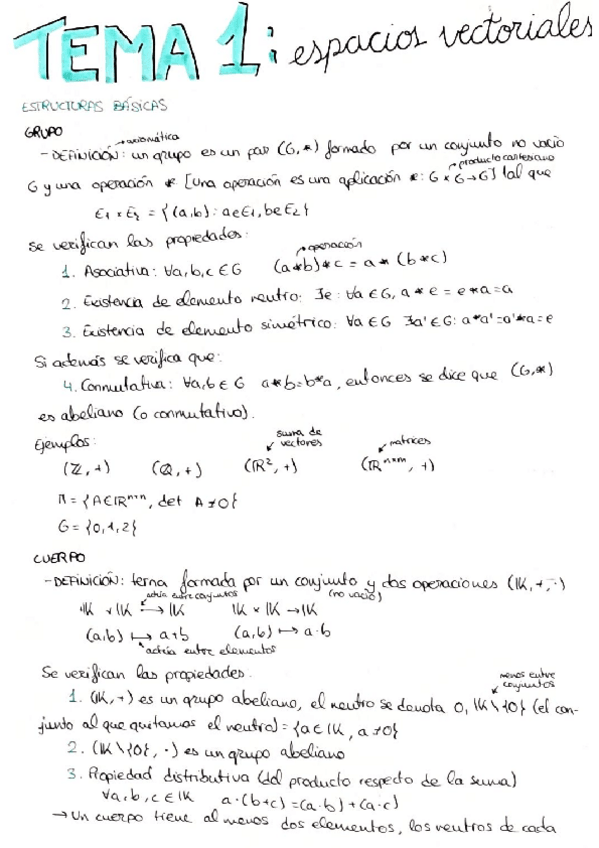 TEMA 1: espacios vectoriales
ESTRUCTURAS BÁSICAS
GRUPO
→axiomática
- DEFINICIÓN: un grupo es un par (G,*) formado por un conjunto no vacío
→producto cartesiano
G y una operación * [Una operación es una aplicación *: G x G→G] tal que
E₁ x E₂ = {(a,b): a∈E₁, b∈E₂}
Se verifican las propiedades:
→operación
1. Asociativa: ∀a,b,c ∈ G (a*b)*c = a * (b*c)
2. Existencia de elemento neutro: ∃e: ∀a ∈ G, a * e = e*a = a
3. Existencia de elemento simétrico: ∀a ∈ G ∃a' ∈ G: a*a' = a'*a = e
Si además se verifica que:
4. Conmutativa: ∀a,b ∈ G a*b = b*a, entonces se dice que (G,*)
es abeliano (o conmutativo).
Ejemplos:
suma de vectores
matrices
(ℤ,+) (ℚ,+) (ℝ², +) (ℝⁿˣᵐ, +)
= {A∈ℝⁿˣⁿ, det A ≠ 0}
G = {0,1,2}
CUERPO
- DEFINICIÓN: terna formada por un conjunto y dos operaciones (𝕂,+,·)
actúa entre conjuntos (no vacío)
𝕂 x 𝕂 → 𝕂 𝕂 x 𝕂 → 𝕂
(a,b) ↦ a+b (a,b) ↦ a·b
actúa entre elementos
Se verifican las propiedades.
menos entre conjuntos
1. (𝕂,+) es un grupo abeliano, el neutro se denota 0, 𝕂\{0} (el con-
junto al que quitamos el neutro) = {a∈𝕂, a≠0}
2. (𝕂\{0}, ·) es un grupo abeliano
3. Propiedad distributiva (del producto respecto de la suma)
∀a,b,c ∈ 𝕂 a·(b+c) = (a·b)+(a·c)
→ Un cuerpo tiene al menos dos elementos, los neutros de cada